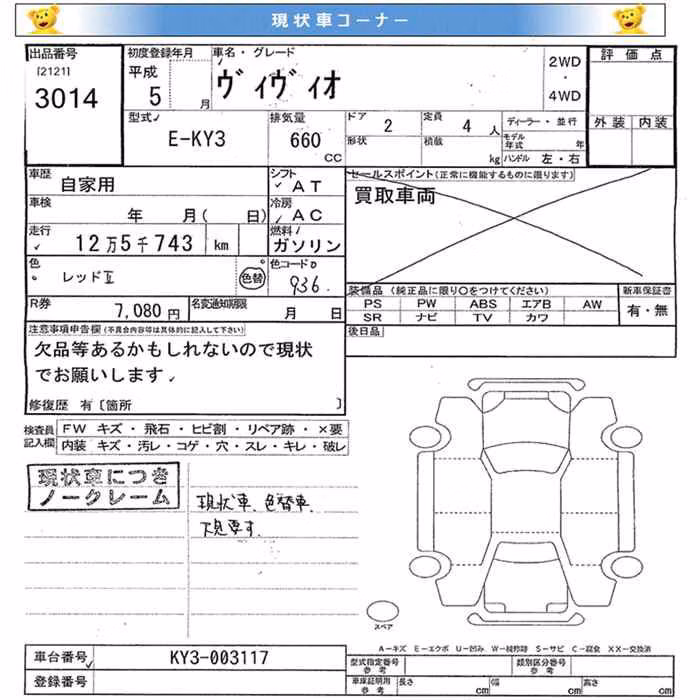 現状車コーナー
出品番号
[2121]
3014
初度登録年月
平成
5 月
車名・グレード
ヴィヴィオ
2WD
・
4WD
評価点
外装 内装
型式
E-KY3
排気量
660
CC
ドア
2
定員
4 人
形状
積載
kg
ディーラー・並行
モデル年式 年
ハンドル 左・右
車歴
自家用
シフト
AT
車検
年 月( 日)
冷房
AC
走行
12万5千743 km
燃料
ガソリン
色
レッドⅡ
色替
色コードNo
936
R券
7,080円
名変通知期限
月 日
セールスポイント(正常に機能するものに限ります)
買取車両
装備品(純正品に限り○をつけてください)
PS PW ABS エアB AW
SR ナビ TV カワ
新車保証書
有・無
後日品
注意事項申告欄(不具合内容等は具体的に記入して下さい)
欠品等あるかもしれないので現状
でお願いします
修復歴 有〔箇所 〕
検査員
記入欄
FW キズ・飛石・ヒビ割・リペア跡・×要
内装 キズ・汚レ・コゲ・穴・スレ・キレ・破レ
現状車につき
ノークレーム
現状車、色替車、
下見要す。
スペア
A-キズ E-エクボ U-凹み W-補修跡 S-サビ C-腐食 XX-交換済
車台番号
KY3-003117
登録番号
型式指定番号
参考
類別区分番号
参考
車庫証明用
参考
長さ cm
幅 cm
高さ cm